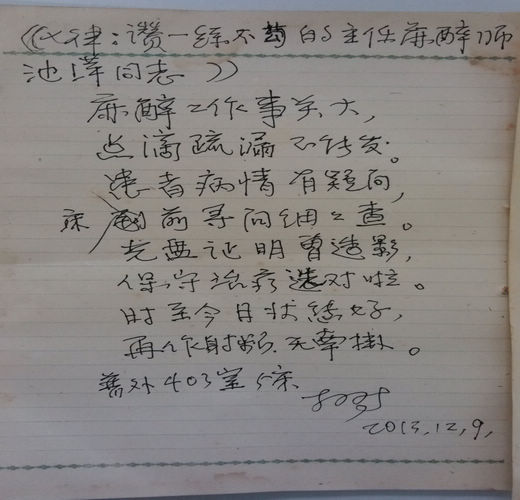 《七律：赞一丝不苟的主任麻醉师
池萍同志》
麻醉工作事关大，
点滴疏漏不能发。
患者病情有疑问，
床前寻问细细查。
先要证明曾造影，
保守治疗选对啦。
时至今日状态好，
再作射频无牵挂。
普外403室5床
2013.12.9.